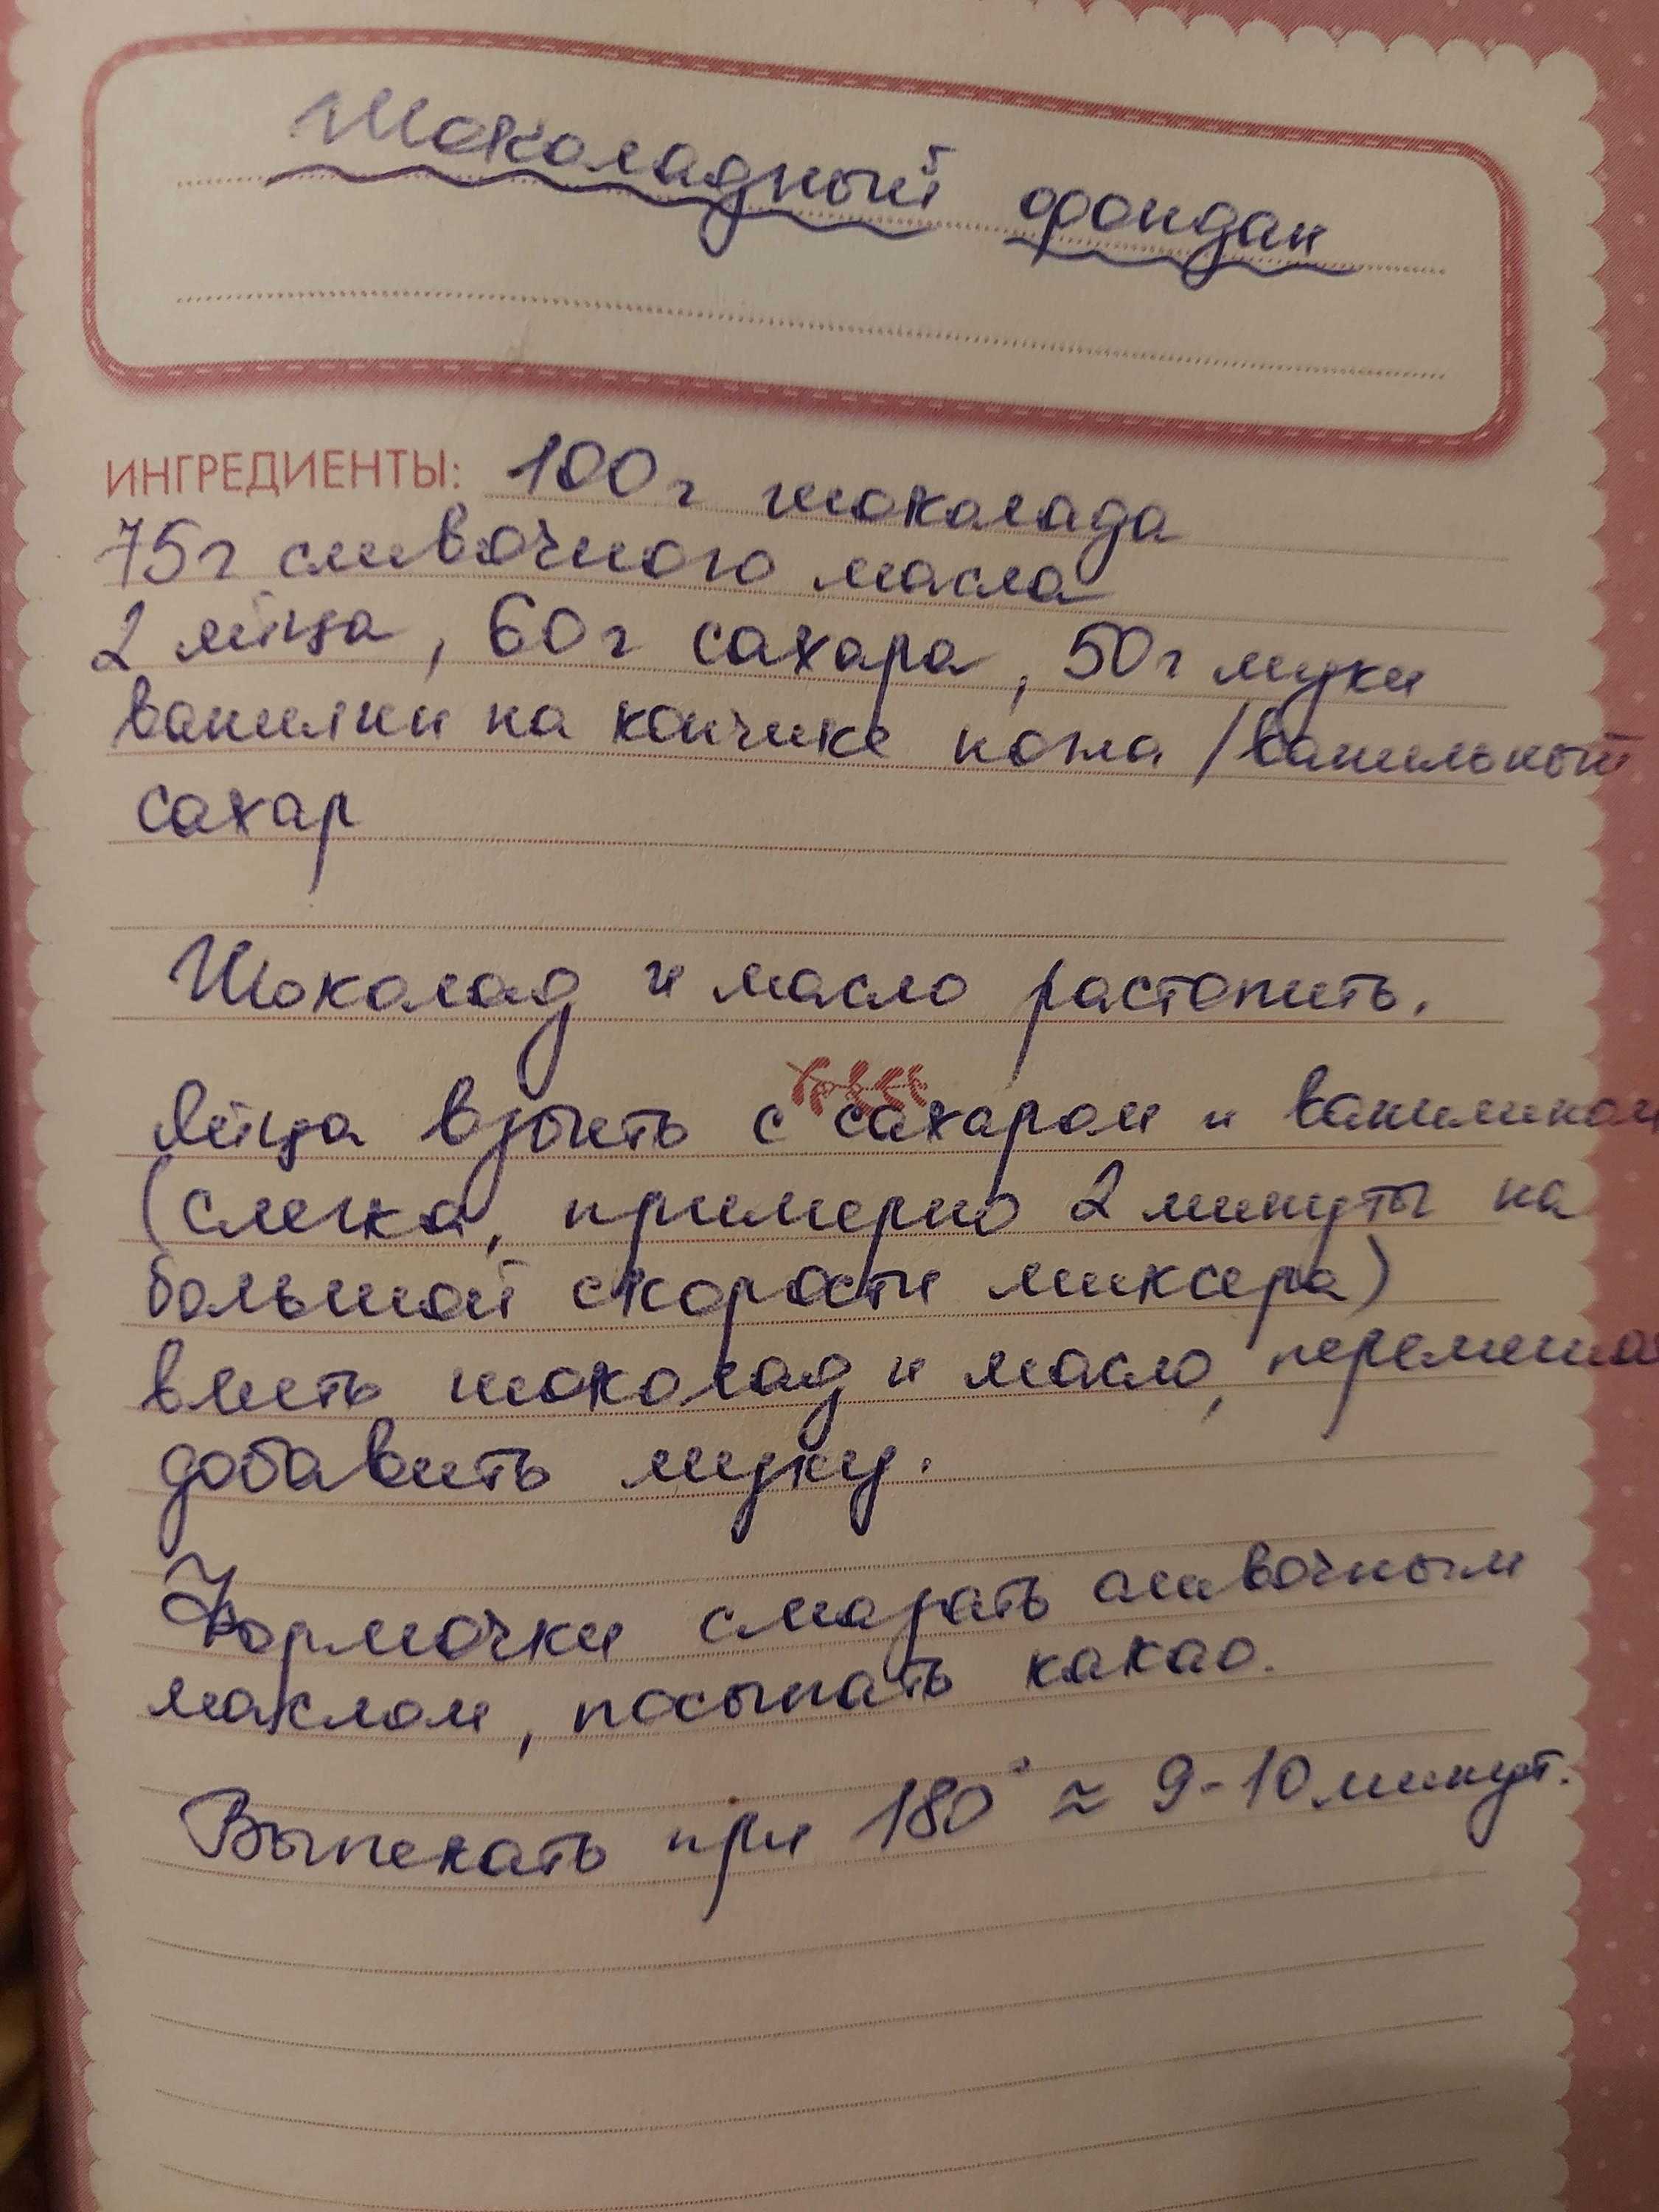 Шоколадный фондан
ИНГРЕДИЕНТЫ: 100г шоколада
75г сливочного масла
2 яйца, 60г сахара, 50г муки
ванилин на кончике ножа / ванильный
сахар
Шоколад и масло растопить.
Яйца взбить с сахаром и ванилином
(слегка, примерно 2 минуты на
большой скорости миксера)
влить шоколад и масло, перемеша
добавить муку.
Формочки смазать сливочным
маслом, посыпать какао.
Выпекать при 180° ≈ 9-10 минут.